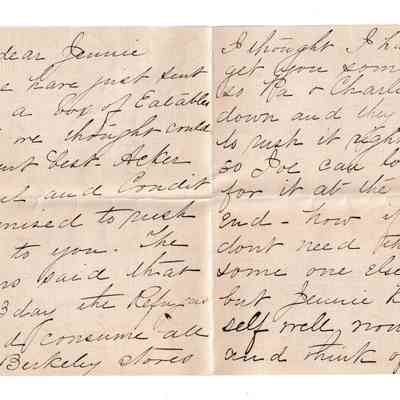 dear Jennie
have just sent
a box of Eatables
we thought could
best - Acker
and Condit
mised to rush
to you. The
rs said that
3 day the Refugees
d consume all
Berkeley stores
I thought I ha
get you som
so Pa & Charli
down and they
to rush it right
so Joe can lo
for it at the
end - now if
dont need th
some one else
but Jennie k
self well, now
and think of